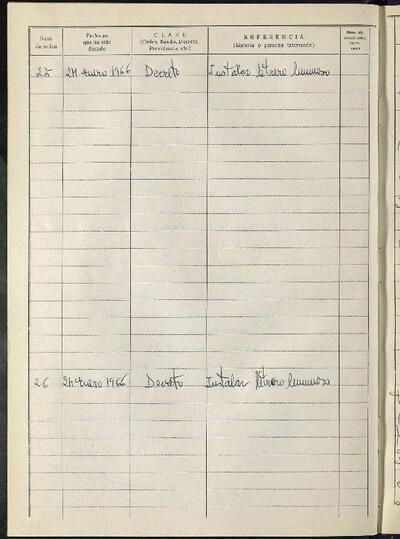 Núm. de orden
Fecha en que ha sido dictado
CLASE
(Orden, Bando, Decreto, Providencia, etc.)
REFERENCIA
(Materia o persona interesada)
Núm. de
25 24 enero 1966 Decreto Instalar letrero luminoso
26 24 enero 1966 Decreto Instalar letrero luminoso